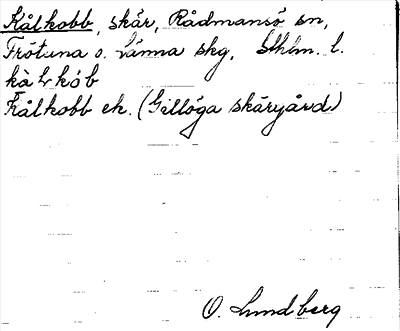 Kålkobb, skär, Rådmansö sn,
Frötuna o. Länna skg, Sthlm. l.
kàLkób
Kålkobb ek. (Gillöga skärgård)
O. Lundberg